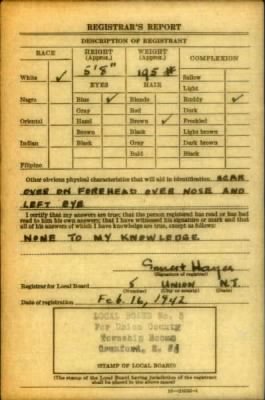 REGISTRAR'S REPORT
DESCRIPTION OF REGISTRANT
RACE HEIGHT (Approx.) WEIGHT (Approx.) COMPLEXION
White ✓ 5'8" 195 # Sallow
EYES HAIR Light
Negro Blue ✓ Blonde Ruddy ✓
Gray Red Dark
Oriental Hazel Brown ✓ Freckled
Brown Black Light brown
Indian Black Gray Dark brown
Bald Black
Filipino
Other obvious physical characteristics that will aid in identification SCAR
OVER ON FOREHEAD OVER NOSE AND
LEFT EYE
I certify that my answers are true; that the person registered has read or has had
read to him his own answers; that I have witnessed his signature or mark and that
all of his answers of which I have knowledge are true, except as follows:
NONE TO MY KNOWLEDGE.
(Signature of registrar)
Registrar for Local Board 5 UNION N.J.
(Number) (City or county) (State)
Date of registration Feb. 16, 1942
LOCAL BOARD No. 5
For Union County
Township Rooms
Cranford, N. J.
(STAMP OF LOCAL BOARD)
(The stamp of the Local Board having jurisdiction of the registrant
shall be placed in the above space)